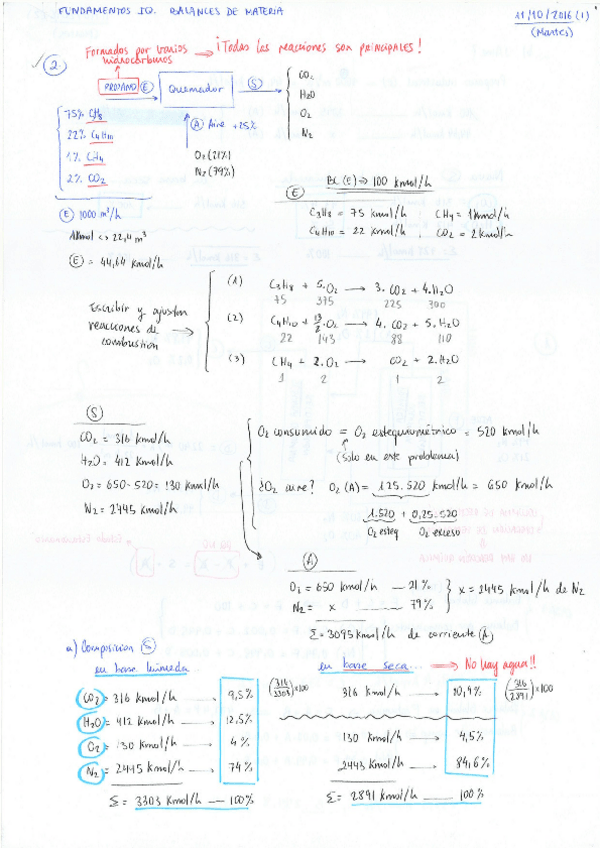 FUNDAMENTOS IQ. BALANCES DE MATERIA
11/10/2016 (1)
(Martes)
Formados por varios hidrocarburos → ¡Todas las reacciones son principales!
2.
PROPANO (E) → Quemador (S) →
CO2
H2O
O2
N2
(A) Aire +25%
O2 (21%)
N2 (79%)
75% C3H8
22% C4H10
1% CH4
2% CO2
(E) 1000 m³/h
1 kmol <> 22,4 m³
(E) = 44,64 kmol/h
(E) BC (E) → 100 kmol/h
C3H8 = 75 kmol/h CH4 = 1 kmol/h
C4H10 = 22 kmol/h , CO2 = 2 kmol/h
Escribir y ajustar
reacciones de
combustión
(1) C3H8 + 5·O2 → 3·CO2 + 4·H2O
75 375 225 300
(2) C4H10 + 13/2·O2 → 4·CO2 + 5·H2O
22 143 88 110
(3) CH4 + 2·O2 → CO2 + 2·H2O
1 2 1 2
(S)
CO2 = 316 kmol/h
H2O = 412 kmol/h
O2 = 650-520 = 130 kmol/h
N2 = 2445 kmol/h
O2 consumido = O2 estequiométrico = 520 kmol/h
(Solo en este problema)
¿O2 aire? O2 (A) = 1'25·520 kmol/h = 650 kmol/h
1·520 + 0,25·520
O2 esteq O2 exceso
(A)
O2 = 650 kmol/h — 21%
N2 = x — 79%
x = 2445 kmol/h de N2
Σ = 3095 kmol/h de corriente (A)
a) Composición (S)
en base húmeda...
CO2 = 316 kmol/h → 9,5% (316/3303)×100
H2O = 412 kmol/h → 12,5%
O2 = 130 kmol/h → 4%
N2 = 2445 kmol/h → 74%
Σ = 3303 kmol/h — 100%
en base seca... → No hay agua!!
316 kmol/h → 10,9% (316/2891)×100
130 kmol/h → 4,5%
2443 kmol/h → 84,6%
Σ = 2891 kmol/h — 100%